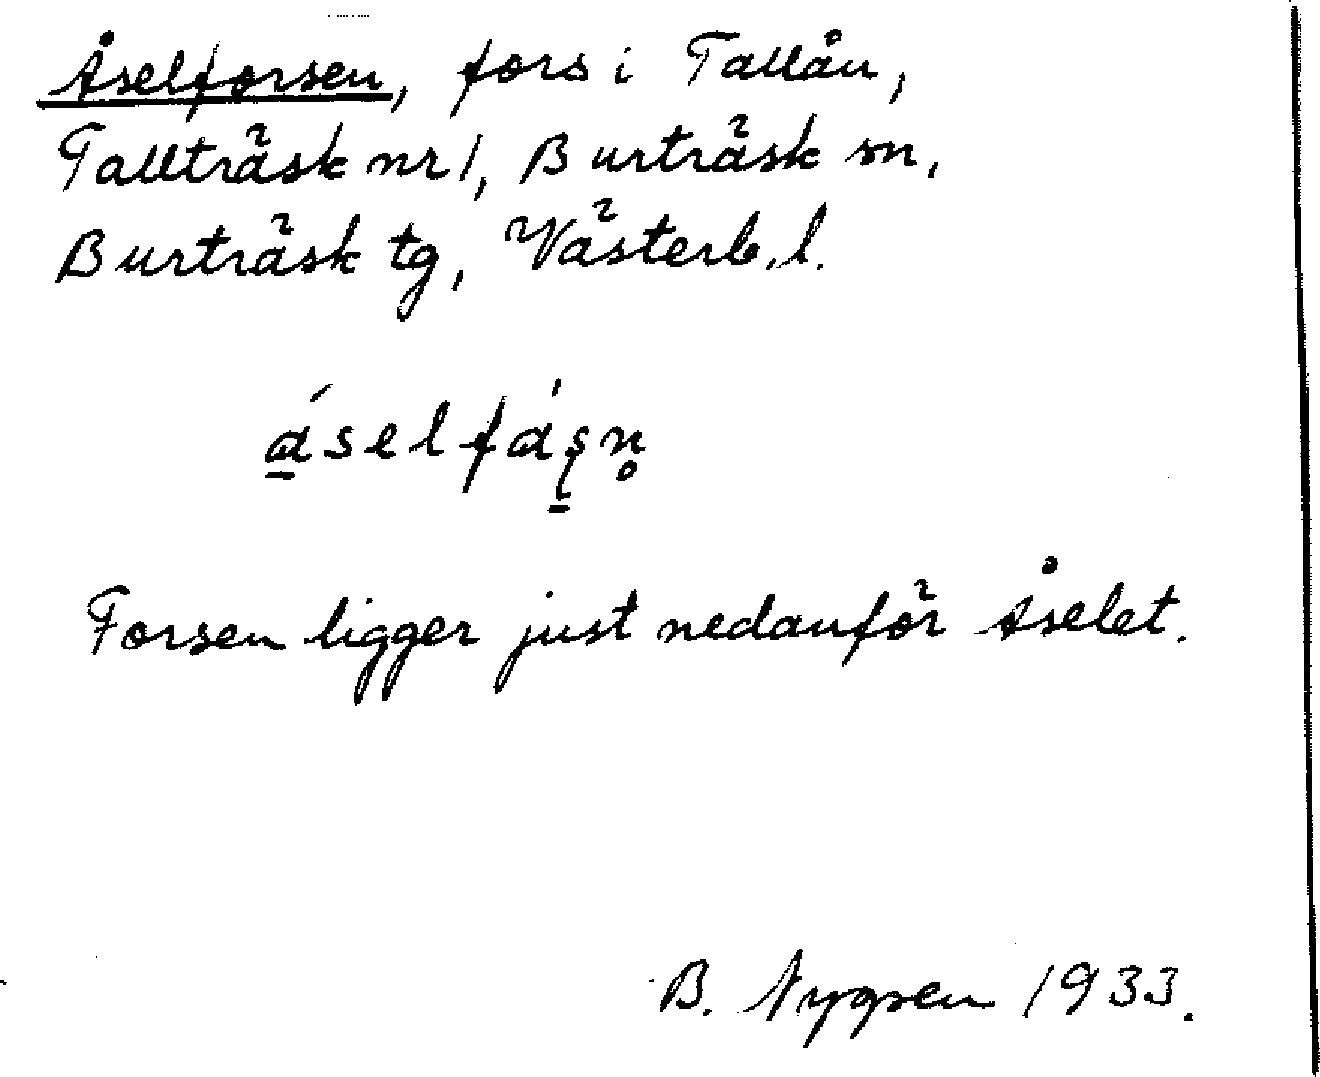 Åselforsen, fors i Tallån,
Tallträsk nr 1, Burträsk sn,
Burträsk tg, Västerb. l.
Forsen ligger just nedanför Åselet.
B. 1933.